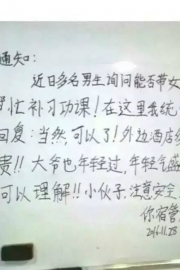 通知：
近日多名男生询问能否带女
忙补习功课！在这里我统
回复：当然，可以了！外边酒店
贵！！大爷也年轻过，年轻气盛
可以理解！！小伙子，注意安全
你宿管
2016.11.28